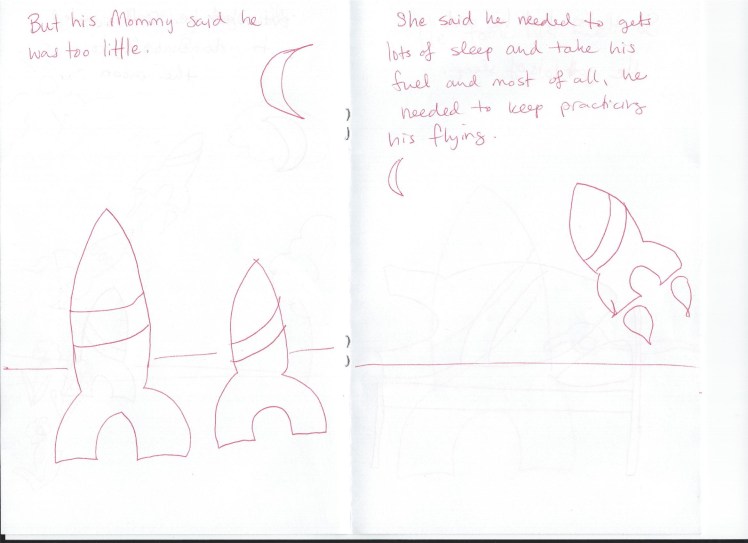 But his Mommy said he
was too little.
She said he needed to gets
lots of sleep and take his
fuel and most of all, he
needed to keep practicing
his flying.